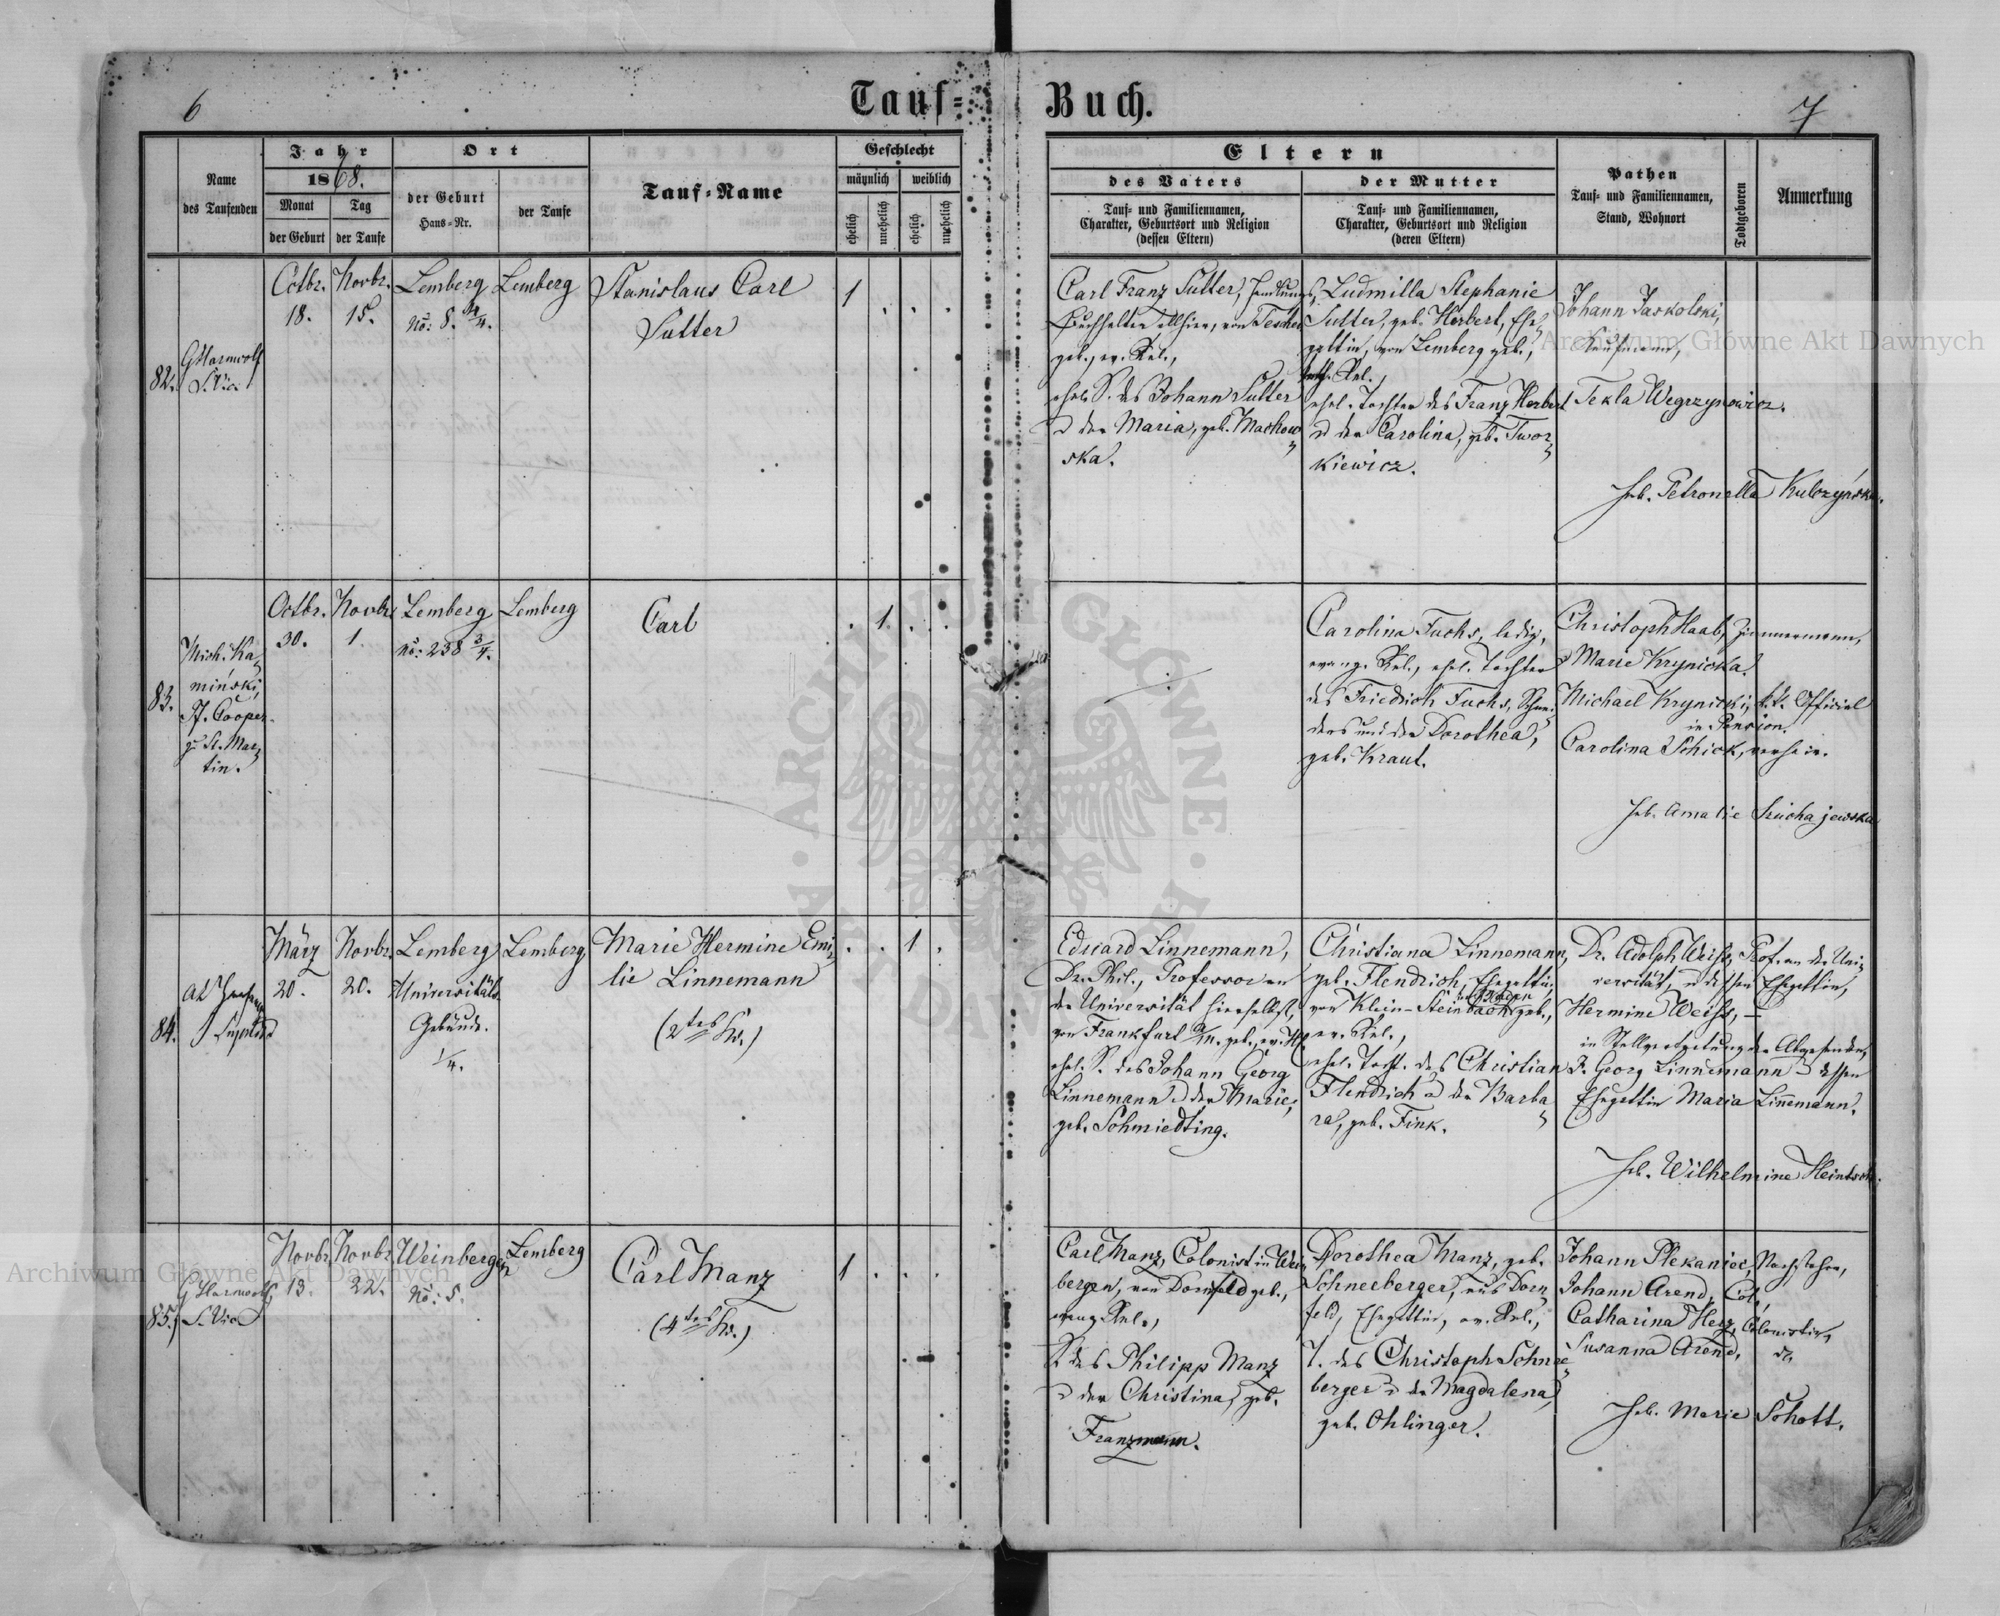 6
Tauf=
Buch.
7
Name
des Taufenden
Jahr
1868.
Monat
der Geburt
Tag
der Taufe
Ort
der Geburt
Haus=Nr.
der Taufe
Tauf=Name
Geschlecht
männlich
weiblich
ehelich
unehelich
ehelich
unehelich
Eltern
des Vaters
Tauf= und Familiennamen,
Charakter, Geburtsort und Religion
(dessen Eltern)
der Mutter
Tauf= und Familiennamen,
Charakter, Geburtsort und Religion
(deren Eltern)
Pathen
Tauf= und Familiennamen,
Stand, Wohnort
Todtgeboren
Anmerkung
82.
GHarnwolf
S. Vic.
Octbr.
18.
Novbr.
15.
Lemberg
No: 8. 2/4.
Lemberg
Stanislaus Carl
Sutter
1
Carl Franz Sutter, Handlungs
Buchhalter allhier, von Teschen
geb., ev. Rel.,
ehel. S. des Johann Sutter
u der Maria, geb. Machow
ska.
Ludmilla Stephanie
Sutter, geb. Herbert, Ehe
gattin, von Lemberg geb.,
kath. Rel.,
ehel. Tochter des Franz Herbert
u der Carolina, geb. Twor
kiewicz.
Johann Jaskolski,
Kaufmann,
Tekla Wegrzynowicz.
Heb. Petronella Kulczyńska.
83.
Mich. Ka
miński,
Pf. Cooper.
zu St. Mar
tin.
Octbr.
30.
Novbr.
1.
Lemberg
No: 238 3/4.
Lemberg
Carl
1.
Carolina Fuchs, ledig,
evang. Rel., ehel. Tochter
des Friedrich Fuchs, Schnei
ders und der Dorothea,
geb. Kraut.
Christoph Haab, Zimmermann,
Marie Krynicka.
Michael Krynicki, k.k. Official
in Pension.
Carolina Schick,
Heb. Amalie Szuchajewska
84.
März
20.
Novbr.
20.
Lemberg
Universitäts
Gebäude.
1/4.
Lemberg
Marie Hermine Emi
lie Linnemann
(2tes K.)
1
Eduard Linnemann,
Dr. Phil., Professor an
der Universität hierselbst,
von Frankfurt a/M. geb., ev. H.C.
ehel. S. des Johann Georg
Linnemann u der Marie,
geb. Schmiedting.
Christiana Linnemann,
geb. Flendrich, Ehegattin,
von Klein-Steinbach geb.,
in Baden
ev. Rel.,
ehel. Tocht. des Christian
Flendrich u der Barba
ra, geb. Fink.
Dr. Adolph Weiss, Prof. an der Uni
versität, u dessen Ehegattin,
Hermine Weiss, —
in Stellvertretung der Abwesenden,
J. Georg Linnemann u dessen
Ehegattin Maria Linnemann.
Heb. Wilhelmine Heintsch.
85.
GHarnwolf,
S. Vic.
Novbr.
13.
Novbr.
22.
Weinbergen
No: 5.
Lemberg
Carl Manz
(4tes K.)
1
Carl Manz, Colonist in Wein
bergen, von Dornfeld geb.,
evang. Rel.,
S. des Philipp Manz
u der Christina, geb.
Franzmann.
Dorothea Manz, geb.
Schneeberger, aus Dorn
feld, Ehegattin, ev. Rel.,
T. des Christoph Schnee
berger u der Magdalena,
geb. Ohlinger.
Johann Plekaniec,
Johann Arend, Col.,
Catharina Herz, Colonistin,
Susanna Arend, do.
Heb. Marie Schott.
Archiwum Główne Akt Dawnych
Archiwum Główne Akt Dawnych
ARCHIWUM GŁÓWNE AKT DAWNYCH